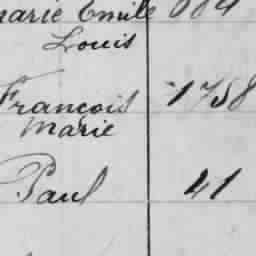 Marie Emile 004
Louis
François 1758
Marie
Paul 41